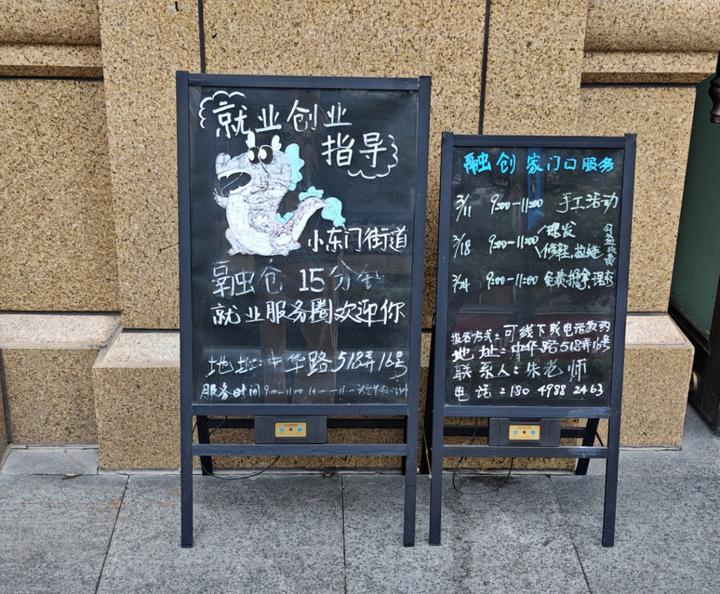 就业创业
指导
小东门街道
融创 15分钟
就业服务圈欢迎你
地址:中华路518弄16号
服务时间 9:00-11:00
融创家门口服务
3/11 9:00-11:00 手工活动
3/18 9:00-11:00 理发
修鞋,拉链
3/24 9:00-11:00
报名方式:可线下或电话预约
地址:中华路518弄16号
联系人:朱老师
电话:180 4988 2463